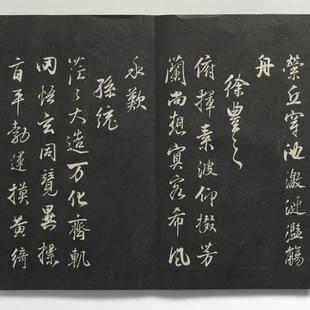 縈丘穿池激漣濫觴
舟
徐豐之
俯揮素波仰掇芳
蘭尚想冥客希風
永歎
孫統
茫々大造万化齊軌
罔悟玄同競異摽
旨平勃運謨黃綺